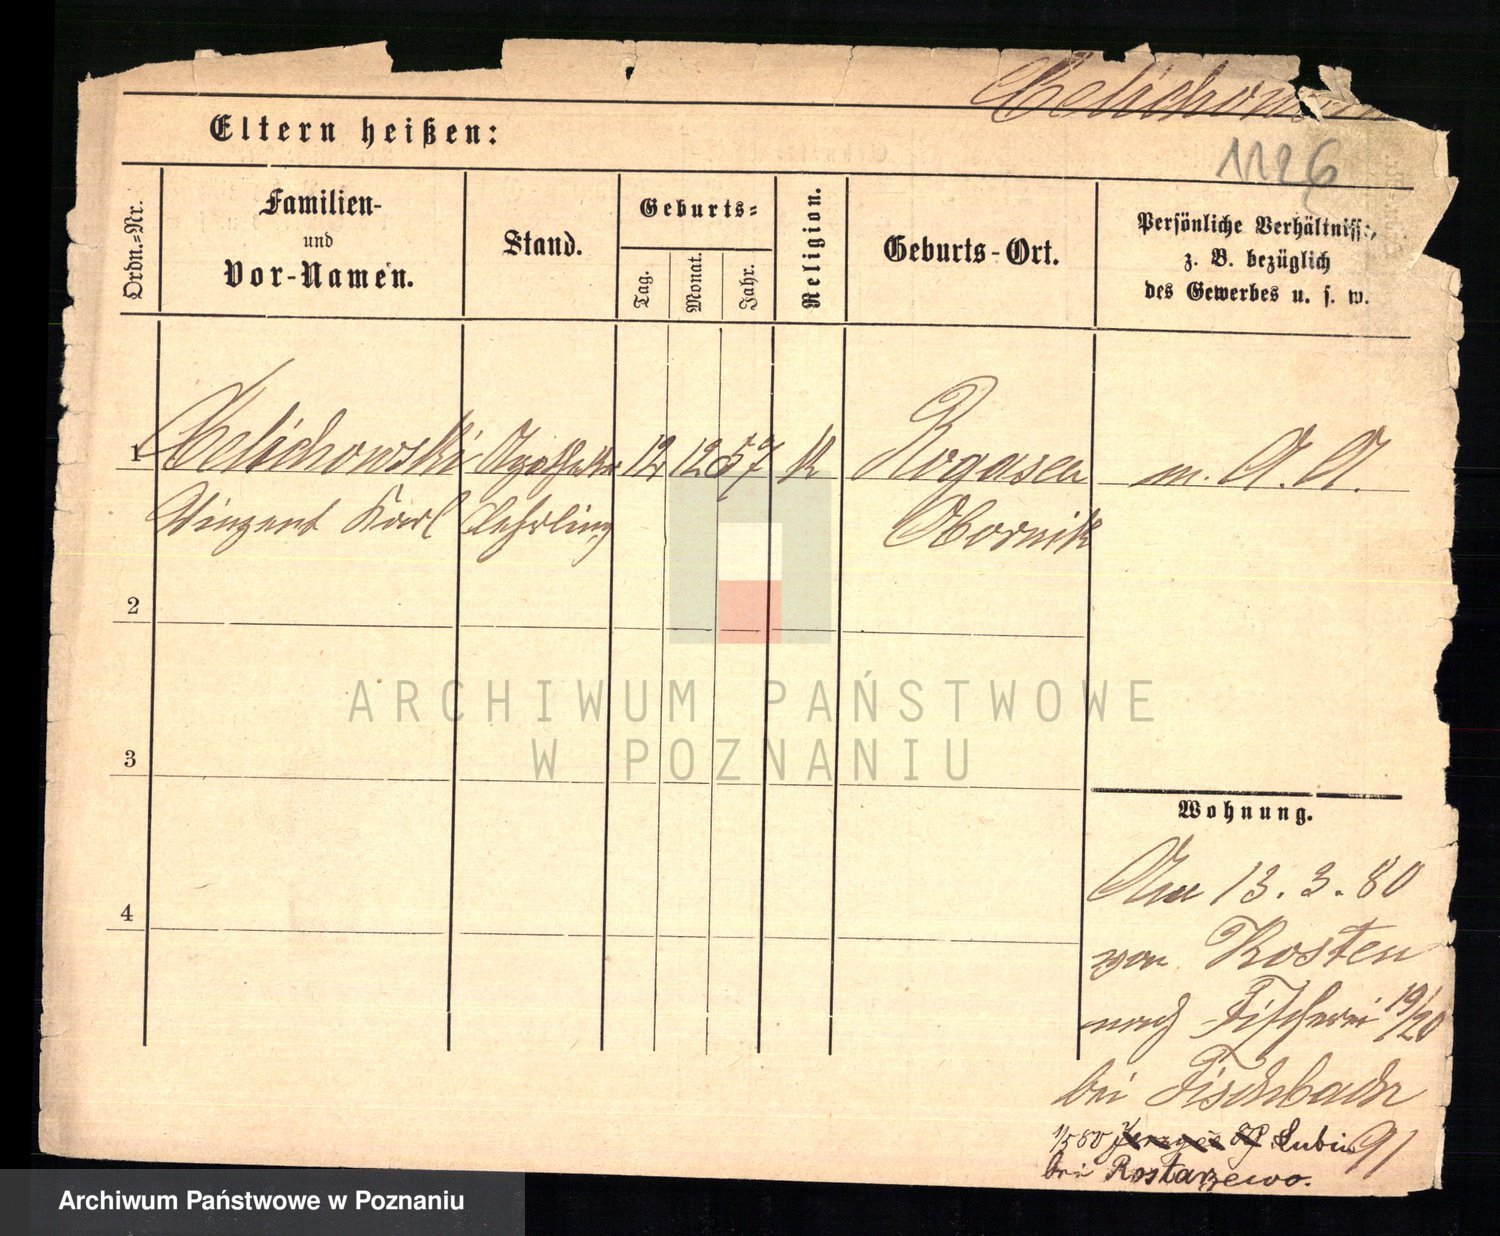 Celichowski
Eltern heißen:
1126
Ordn.=Nr.
Familien-
und
Vor-Namen.
Stand.
Geburts=
Tag.
Monat.
Jahr.
Religion.
Geburts-Ort.
Persönliche Verhältnisse,
z. B. bezüglich
des Gewerbes u. s. w.
1 Celichowski Apotheker 12 12 57 K Rogasen m. A. A.
Vinzent Karl Lehrling Obornik
2
3
4
ARCHIWUM PAŃSTWOWE
W POZNANIU
Wohnung.
13.3.80
von Kosten
nach Fischerei 19/20
bei Fischbach
1/5 80 Lubin 91
bei Rostarzewo.
Archiwum Państwowe w Poznaniu